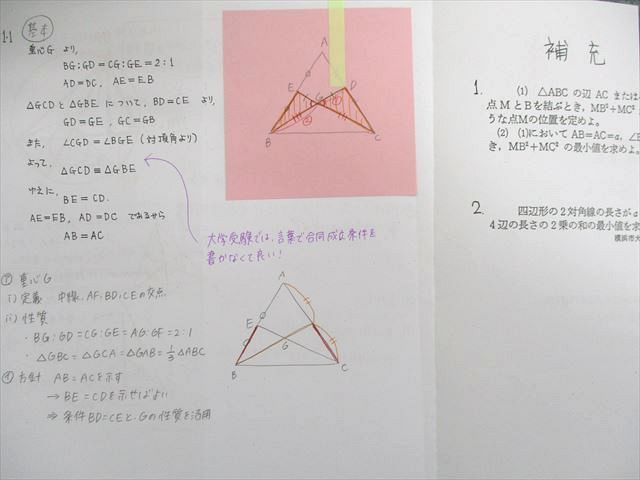 1-1 基本
重心G より,
BG:GD=CG:GE=2:1
AD=DC, AE=EB
△GCDと△GBE について, BD=CE より,
GD=GE, GC=GB
また, ∠CGD=∠BGE (対頂角より)
よって,
△GCD≡△GBE
ゆえに,
BE=CD.
AE=EB, AD=DC であるから
AB=AC
重心G
i) 定義 中線AF, BD, CEの交点
ii) 性質
・BG:GD=CG:GE=AG:GF=2:1
・△GBC=△GCA=△GAB=1/3△ABC
方針 AB=ACを示す
→BE=CDを示せばよい
⇒条件BD=CEと、Gの性質を活用
A
E
D
G
B
C
大学受験では、言葉で合同成立条件を
書かなくて良い!
A
E
G
B
C
補充
1.
(1) △ABC の辺 AC または
点 M と B を結ぶとき, MB²+MC²
うな点Mの位置を定めよ.
(2) (1)において AB=AC=a, ∠
き, MB²+MC² の最小値を求めよ.
2.
四辺形の2対角線の長さが a
4辺の長さの2乗の和の最小値を求
横浜市大